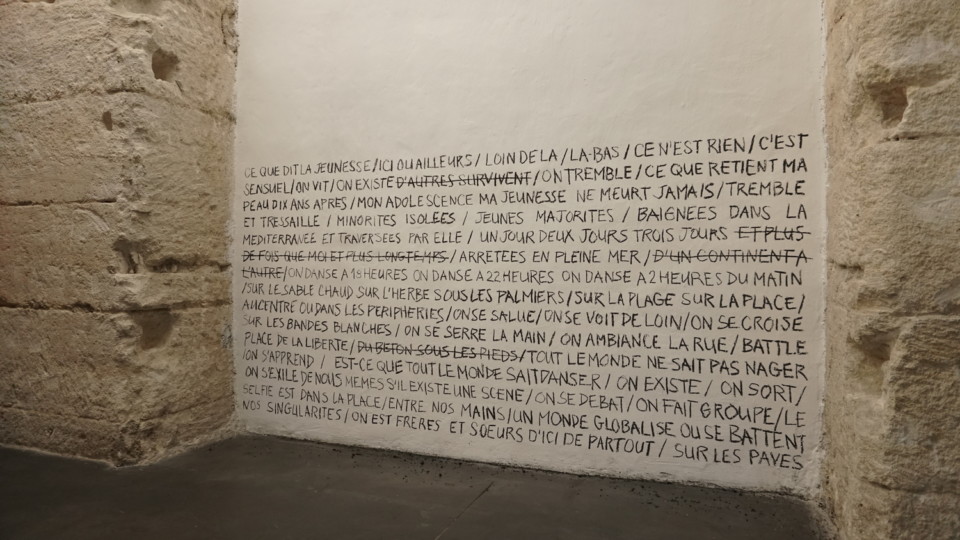 CE QUE DIT LA JEUNESSE/ICI OU AILLEURS / LOIN DE LA / LA-BAS / CE N'EST RIEN / C'EST
SENSUEL/ON VIT/ON EXISTE D'AUTRES SURVIVENT/ON TREMBLE/CE QUE RETIENT MA
PEAU DIX ANS APRES/MON ADOLESCENCE MA JEUNESSE NE MEURT JAMAIS/TREMBLE
ET TRESSAILLE / MINORITES ISOLEES / JEUNES MAJORITES / BAIGNEES DANS LA
MEDITERRANEE ET TRAVERSEES PAR ELLE / UN JOUR DEUX JOURS TROIS JOURS ET PLUS
DE FOIS QUE MOI ET PLUS LONGTEMPS/ARRETEES EN PLEINE MER/D'UN CONTINENT A
L'AUTRE/ON DANSE A 18 HEURES ON DANSE A 22 HEURES ON DANSE A 2 HEURES DU MATIN
/SUR LE SABLE CHAUD SUR L'HERBE SOUS LES PALMIERS/SUR LA PLAGE SUR LA PLACE/
AU CENTRE OU DANS LES PERIPHERIES/ON SE SALUE/ON SE VOIT DE LOIN/ON SE CROISE
SUR LES BANDES BLANCHES / ON SE SERRE LA MAIN / ON AMBIANCE LA RUE/ BATTLE
PLACE DE LA LIBERTE/DU BETON SOUS LES PIEDS/TOUT LE MONDE NE SAIT PAS NAGER
/ON S'APPREND / EST-CE QUE TOUT LE MONDE SAIT DANSER / ON EXISTE / ON SORT/
ON S'EXILE DE NOUS MEMES S'IL EXISTE UNE SCENE/ON SE DEBAT/ON FAIT GROUPE/LE
SELFIE EST DANS LA PLACE/ENTRE NOS MAINS/UN MONDE GLOBALISE OU SE BATTENT
NOS SINGULARITES/ON EST FRERES ET SOEURS D'ICI DE PARTOUT / SUR LES PAVES